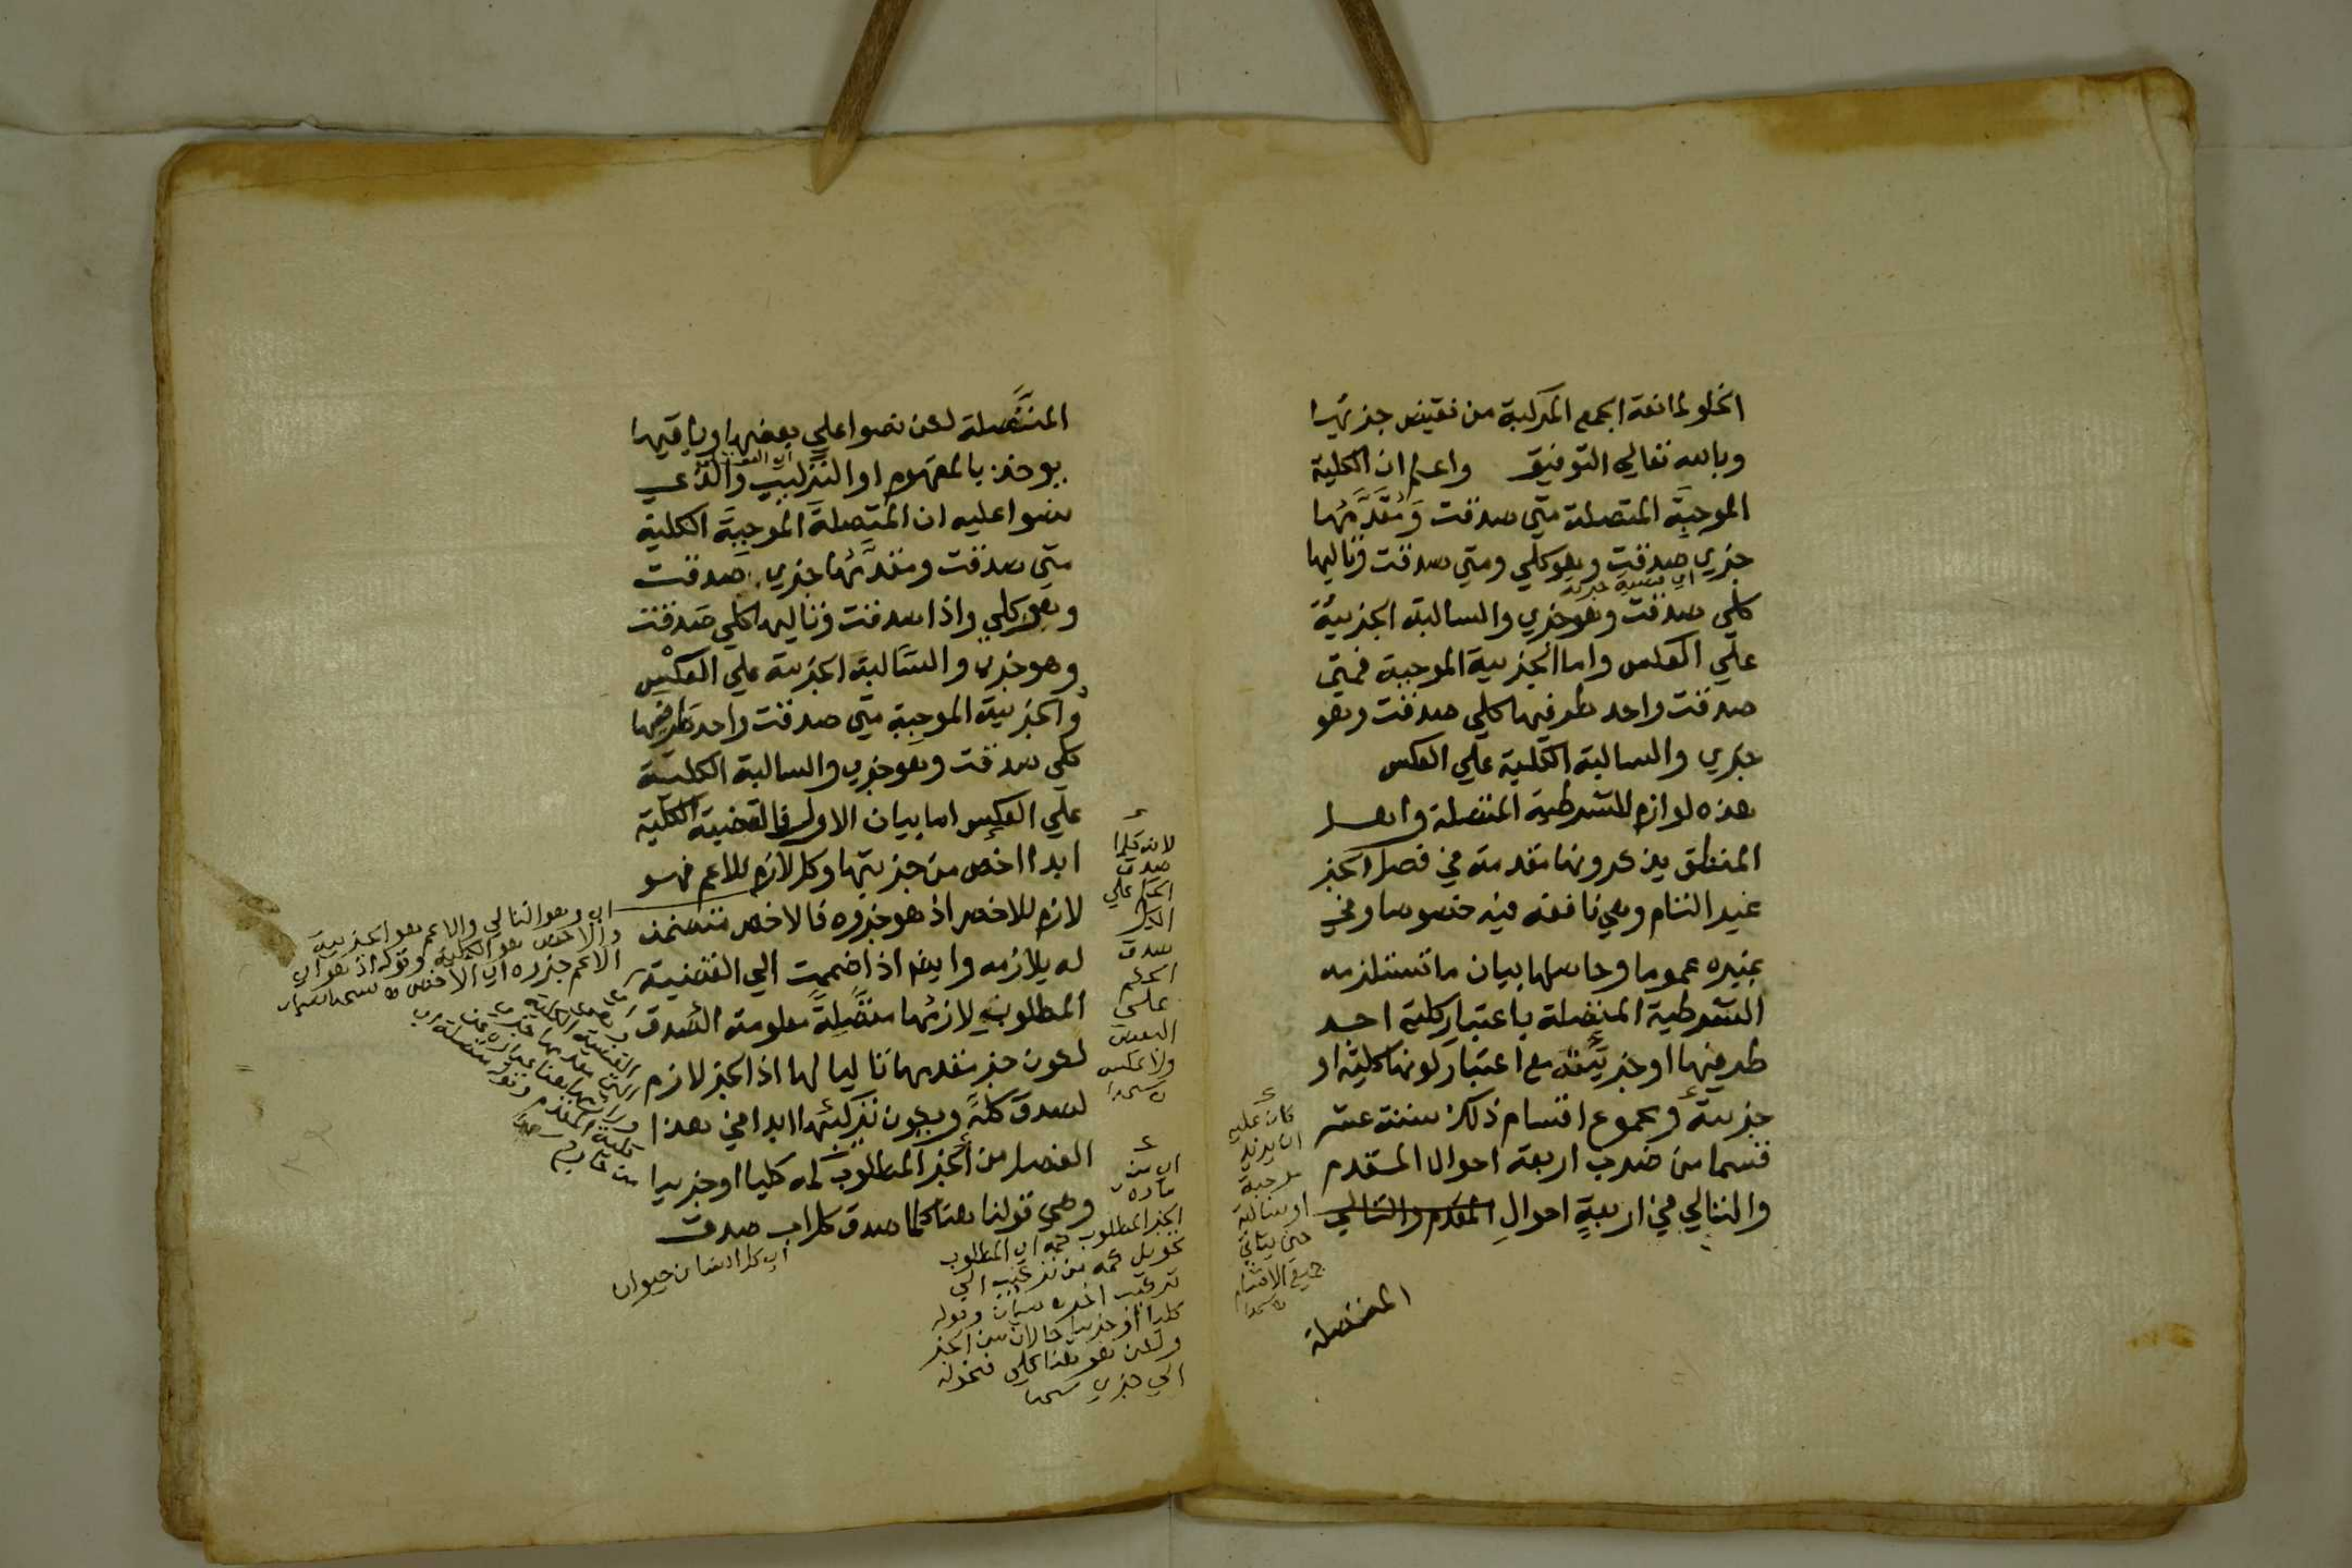 الخلو لمانعة الجمع المركبة من نقيض جزئيها
وبالله تعالي التوفيق واعلم ان الكلية
الموجبة المتصلة متي صدقت ومقدمها
جزي صدقت وهو كلي ومتي صدقت وتاليها
اي قضية جزية
كلي صدقت وهو جزي والسالبة الجزئية
علي العكس واما الجزيية الموجبة فمتي
صدقت واحد طرفيها كلي صدقت وهو
جزي والسالبة الكلية علي العكس
هذه لوازم للشرطية المتصلة واهل
المنطق يذكرونها مقدمة في فصل الجز
غير التام وهي نافعة فيه خصوصا وفي
غيره عموما وحاصلها بيان ما تستلزمه
الشرطية المتصلة باعتبار كلية احد
طرفيها او جزييته مع اعتبار كونها كلية او
جزيية ومجموع اقسام ذلك ستة عشر
قسما من ضرب اربعة احوال المقدم
والتالي في اربعة احوال المقدم والتالي
المتصلة
كان عليه
ان يزيد
موجبة
او سالبة
حتي يتاتي
جميع الاقسام
المتصلة لكن نصوا علي بعضها وباقيها
يوخذ بالمفهوم او التركيب والذي
نصوا عليه ان المتصلة الموجبة الكلية
متي صدقت ومقدمها جزي صدقت
وهو كلي واذا صدقت وتاليها كلي صدقت
وهو جزي والسالبة الجزيية علي العكس
والجزيية الموجبة متي صدقت واحد طرفيها
كلي صدقت وهو جزي والسالبة الكلية
علي العكس اما بيان الاول فالقضية الكلية
ابدا اخص من جزييتها وكل لازم للاعم فهو
لازم للاخص اذ هو جزوه فالاخص متضمن
له يلازمه وايضا اذا ضممت الي القضية
المطلوب لازمها متصلة معلومة الصدق
لكون جز مقدمها تاليا لها اذ الجز لازم
لصدق كله ويكون تركيبها ابدا في هذا
الفصل من الجز المطلوب لمه كليا او جزيا
وهي قولنا هنا كلما صدق كل اب صدق
اي كل انسان حيوان
لانه كلما
صدق
الحكم علي
الكل
صدق
الحكم
علي
البعض
ولا عكس
اي من
مادة
الجز المطلوب لمه اي المطلوب
تحويل كمه من تركيب الي
تركيب اخر بيان وقوله
كليا او جزيا حالان من الجز
ولكن هو هنا كلي فنحوله
الي جزي
اي وهو التالي والاعم هو الجزيية
والاخص هو الكلية وقوله اذ هو اي
الاعم جزوه اي الاخص